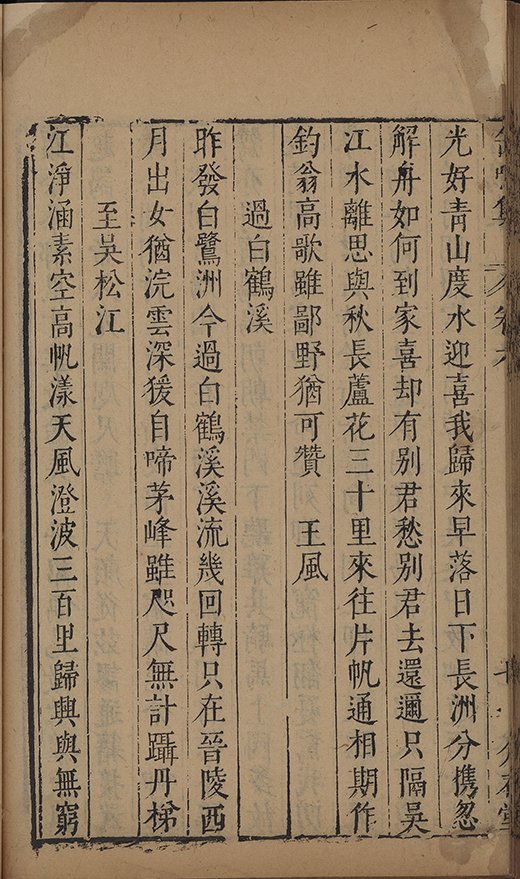 光好青山度水迎喜我歸來早落日下長洲分携忽
解舟如何到家喜却有別君愁別君去還邇只隔吳
江水離思與秋長蘆花三十里來往片帆通相期作
釣翁高歌雖鄙野猶可贊　王風
過白鶴溪
昨發白鷺洲今過白鶴溪溪流幾回轉只在晉陵西
月出女猶浣雲深猨自啼茅峰雖咫尺無計躡丹梯
至吳松江
江淨涵素空高帆漾天風澄波三百里歸興與無窮